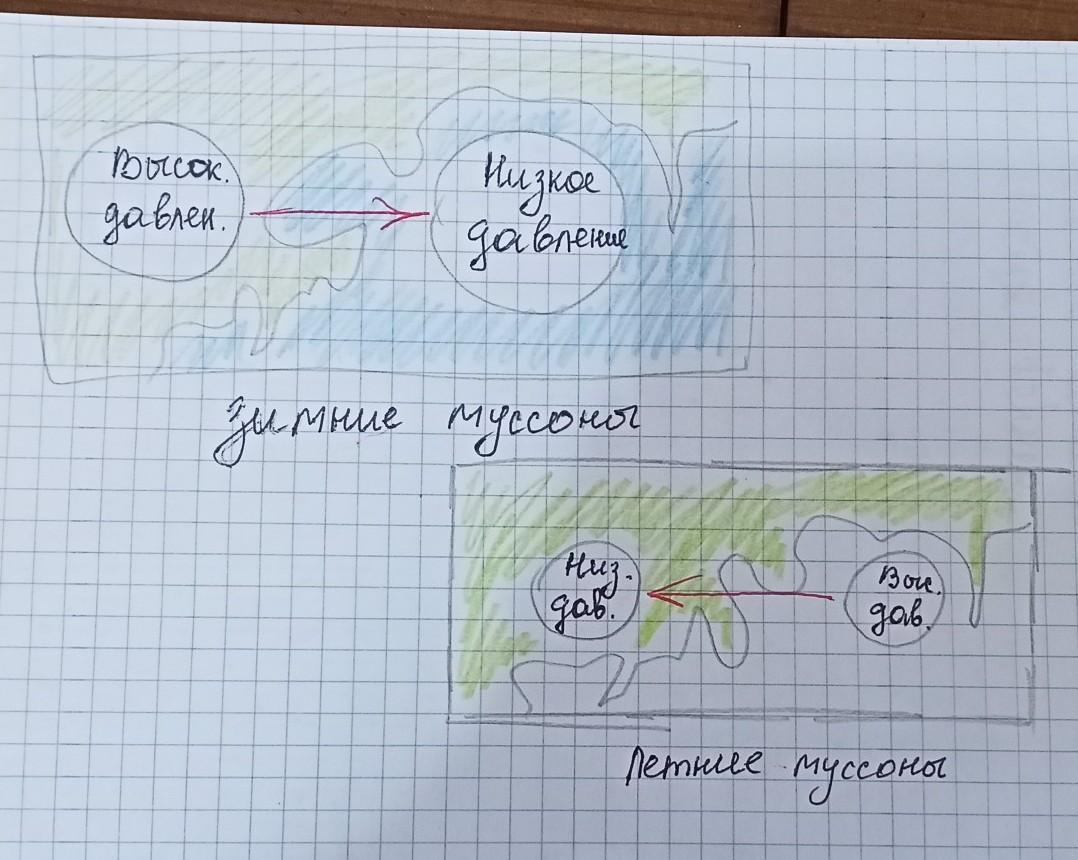 Высок.
давлен.
Низкое
давление
Зимние муссоны
Низ.
дав.
Выс.
дав.
Летние муссоны